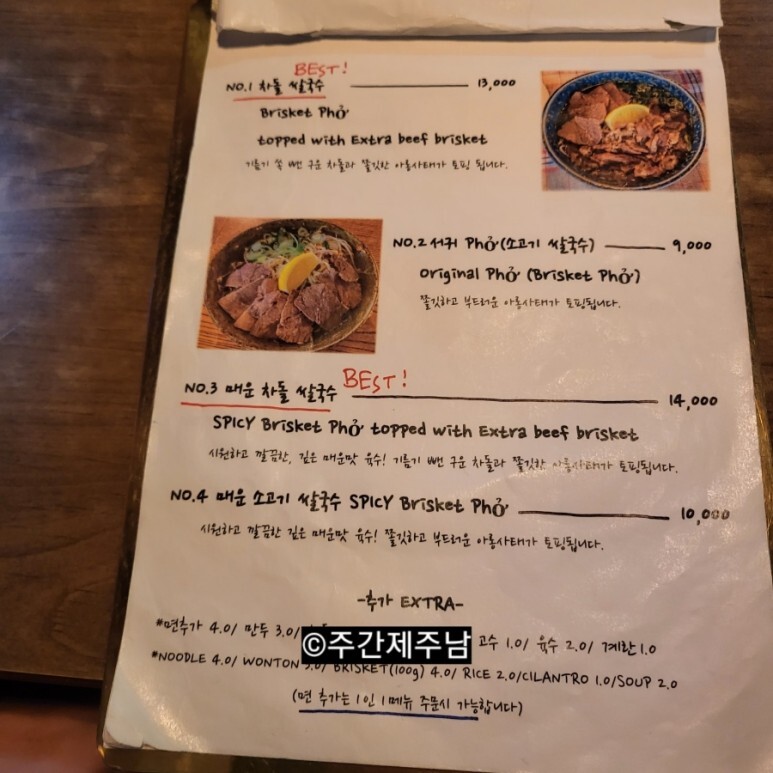 BEST!
NO.1 차돌 쌀국수 13,000
Brisket Phở
topped with Extra beef brisket
기름기 쏙 뺀 구운 차돌과 쫄깃한 아롱사태가 토핑 됩니다.
NO.2 서귀 Phở (소고기 쌀국수) 9,000
Original Phở (Brisket Phở)
쫄깃하고 부드러운 아롱사태가 토핑됩니다.
BEST!
NO.3 매운 차돌 쌀국수 14,000
SPICY Brisket Phở topped with Extra beef brisket
시원하고 깔끔한, 깊은 매운맛 육수! 기름기 뺀 구운 차돌과 쫄깃한 아롱사태가 토핑됩니다.
NO.4 매운 소고기 쌀국수 SPICY Brisket Phở 10,000
시원하고 깔끔한 깊은 매운맛 육수! 쫄깃하고 부드러운 아롱사태가 토핑됩니다.
-추가 EXTRA-
*면추가 4.0/ 만두 3.0/ 고수 1.0/ 육수 2.0/ 계란 1.0
©주간제주남
*NOODLE 4.0/ WONTON 3.0/ BRISKET(100g) 4.0/ RICE 2.0/CILANTRO 1.0/SOUP 2.0
(면 추가는 1인 1메뉴 주문시 가능합니다)